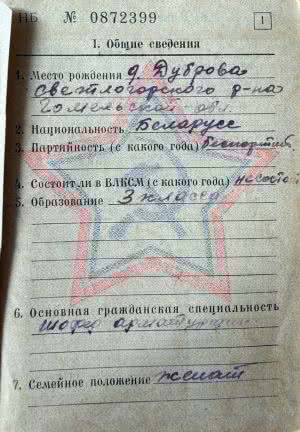 НБ № 0872399
1
I. Общие сведения
1. Место рождения д. Дуброва
Светлогорского р-на
Гомельской обл
2. Национальность Беларусс
3. Партийность (с какого года)
4. Состоит ли в ВЛКСМ (с какого года) не сост
5. Образование 3 класса
6. Основная гражданская специальность
7. Семейное положение женат